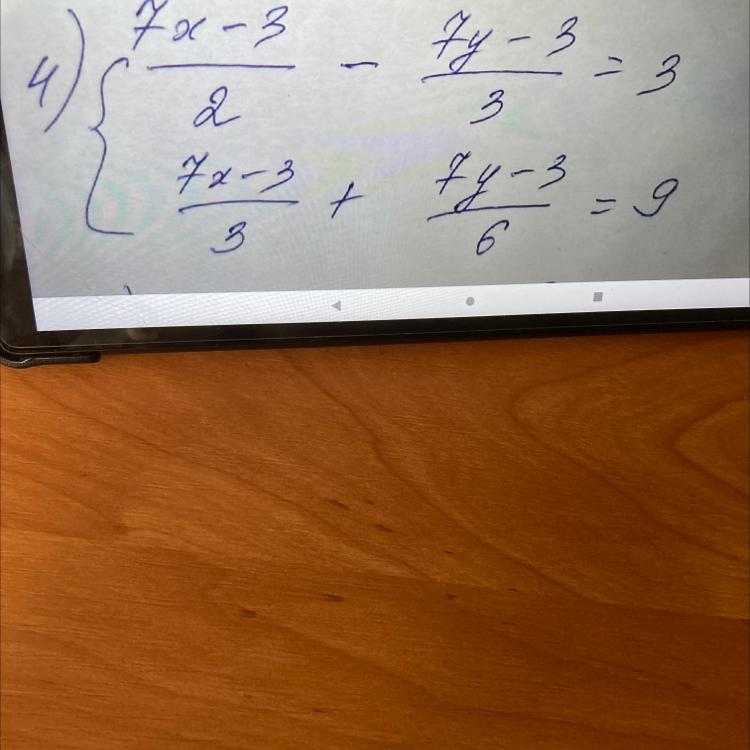 4) { (7x - 3)/2 - (7y - 3)/3 = 3
(7x - 3)/3 + (7y - 3)/6 = 9